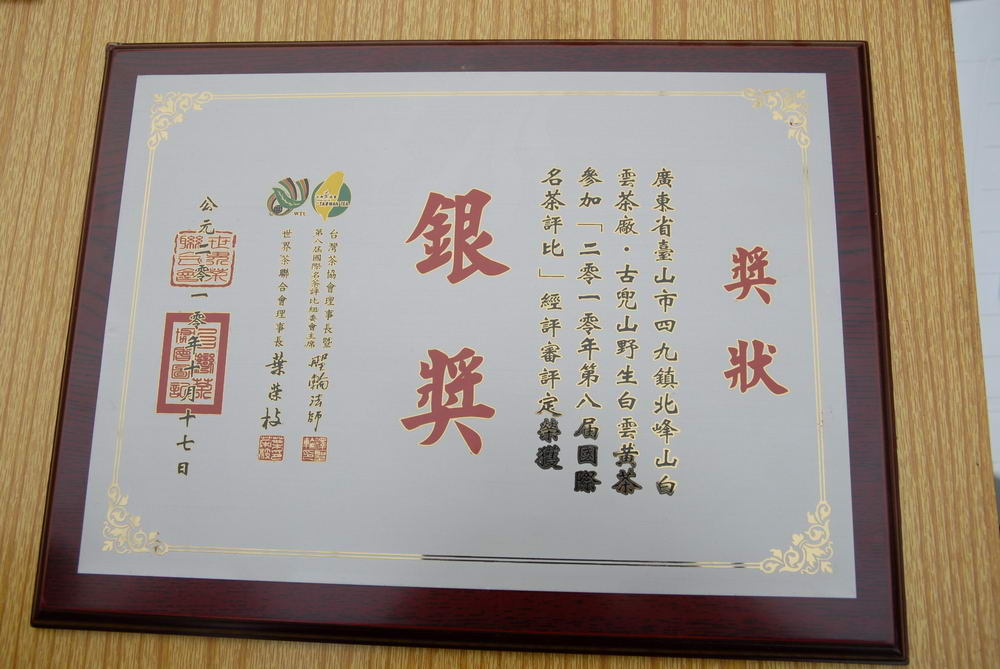 獎狀
廣東省臺山市四九鎮北峰山白
雲茶廠·古兜山野生白雲黃茶
參加「二零一零年第八屆國際
名茶評比」經評審評定榮獲
銀獎
TAIWAN TEA
WTU
台灣茶協會理事長暨
第八屆國際名茶評比組委會主席
聖輪法師
世界茶聯合會理事長
葉榮枝
公元二零一零年十月十七日